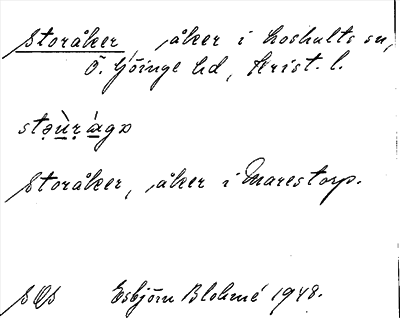 Storåker, åker i Loshults sn,
Ö. Göinge hd, Krist. l.
Storåker, åker i Marestorp.
SOS Esbjörn Blohmé 1948.